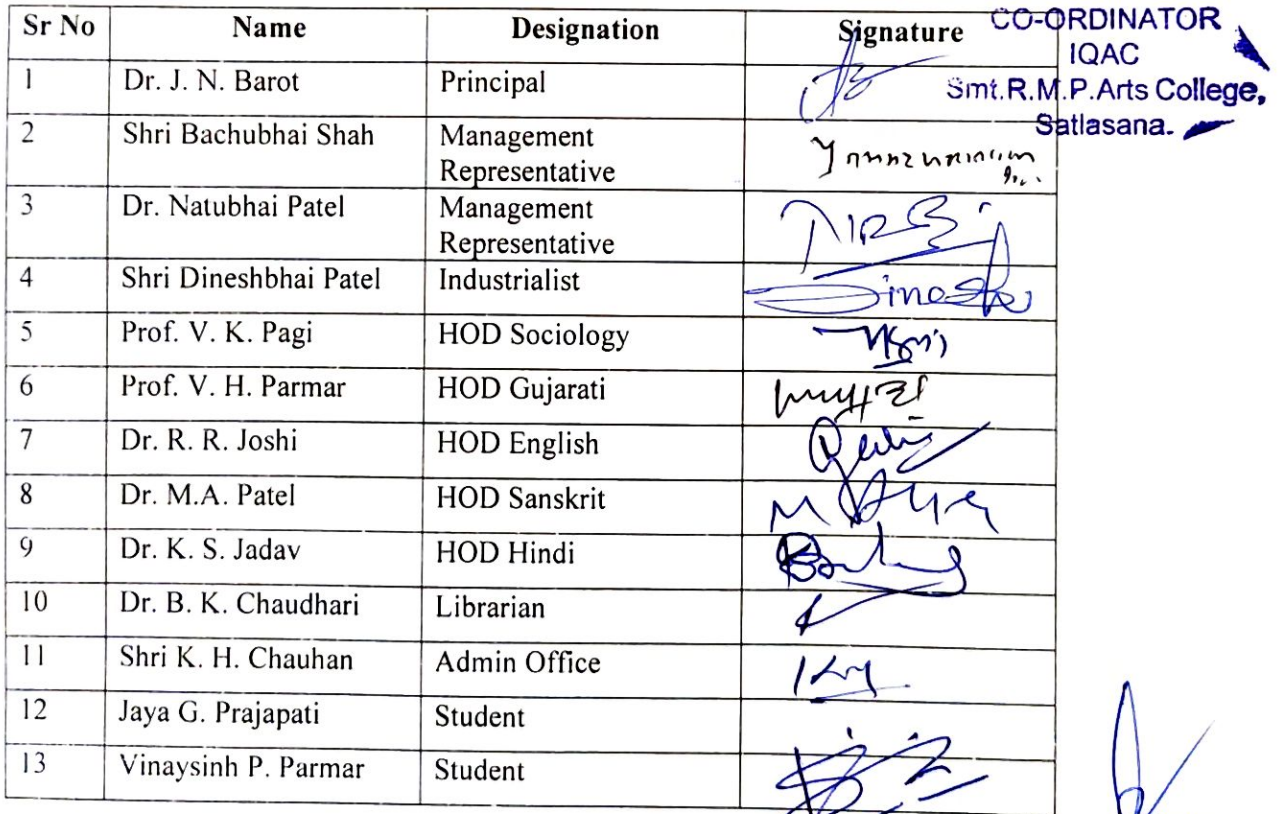 Sr No Name Designation Signature
CO-ORDINATOR
IQAC
Smt.R.M.P.Arts College,
Satlasana.
1 Dr. J. N. Barot Principal
2 Shri Bachubhai Shah Management
Representative
3 Dr. Natubhai Patel Management
Representative
4 Shri Dineshbhai Patel Industrialist Dinesh
5 Prof. V. K. Pagi HOD Sociology
6 Prof. V. H. Parmar HOD Gujarati
7 Dr. R. R. Joshi HOD English
8 Dr. M.A. Patel HOD Sanskrit
9 Dr. K. S. Jadav HOD Hindi
10 Dr. B. K. Chaudhari Librarian
11 Shri K. H. Chauhan Admin Office
12 Jaya G. Prajapati Student
13 Vinaysinh P. Parmar Student